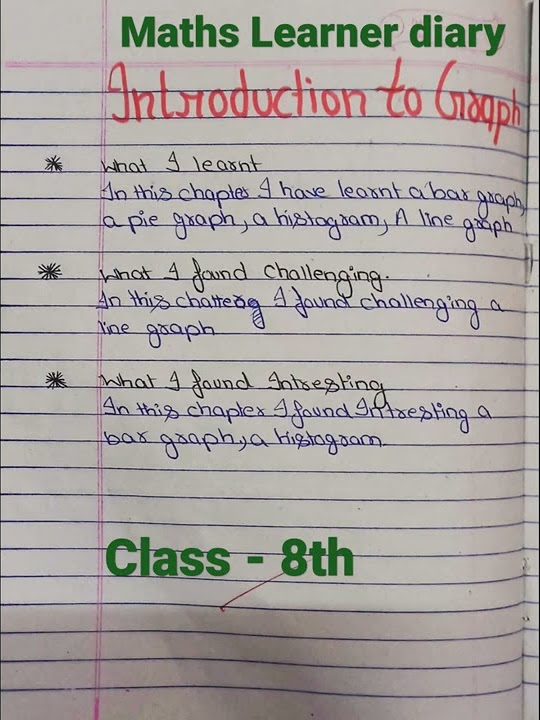 Maths Learner diary
Introduction to Graph
What I learnt
In this chapter I have learnt a bar graph,
a pie graph, a histagram, A line graph
What I found challenging.
In this chatter I found challenging a
line graph
What I found Intresting
In this chapter I found Intresting a
bar graph, a histagram.
Class - 8th